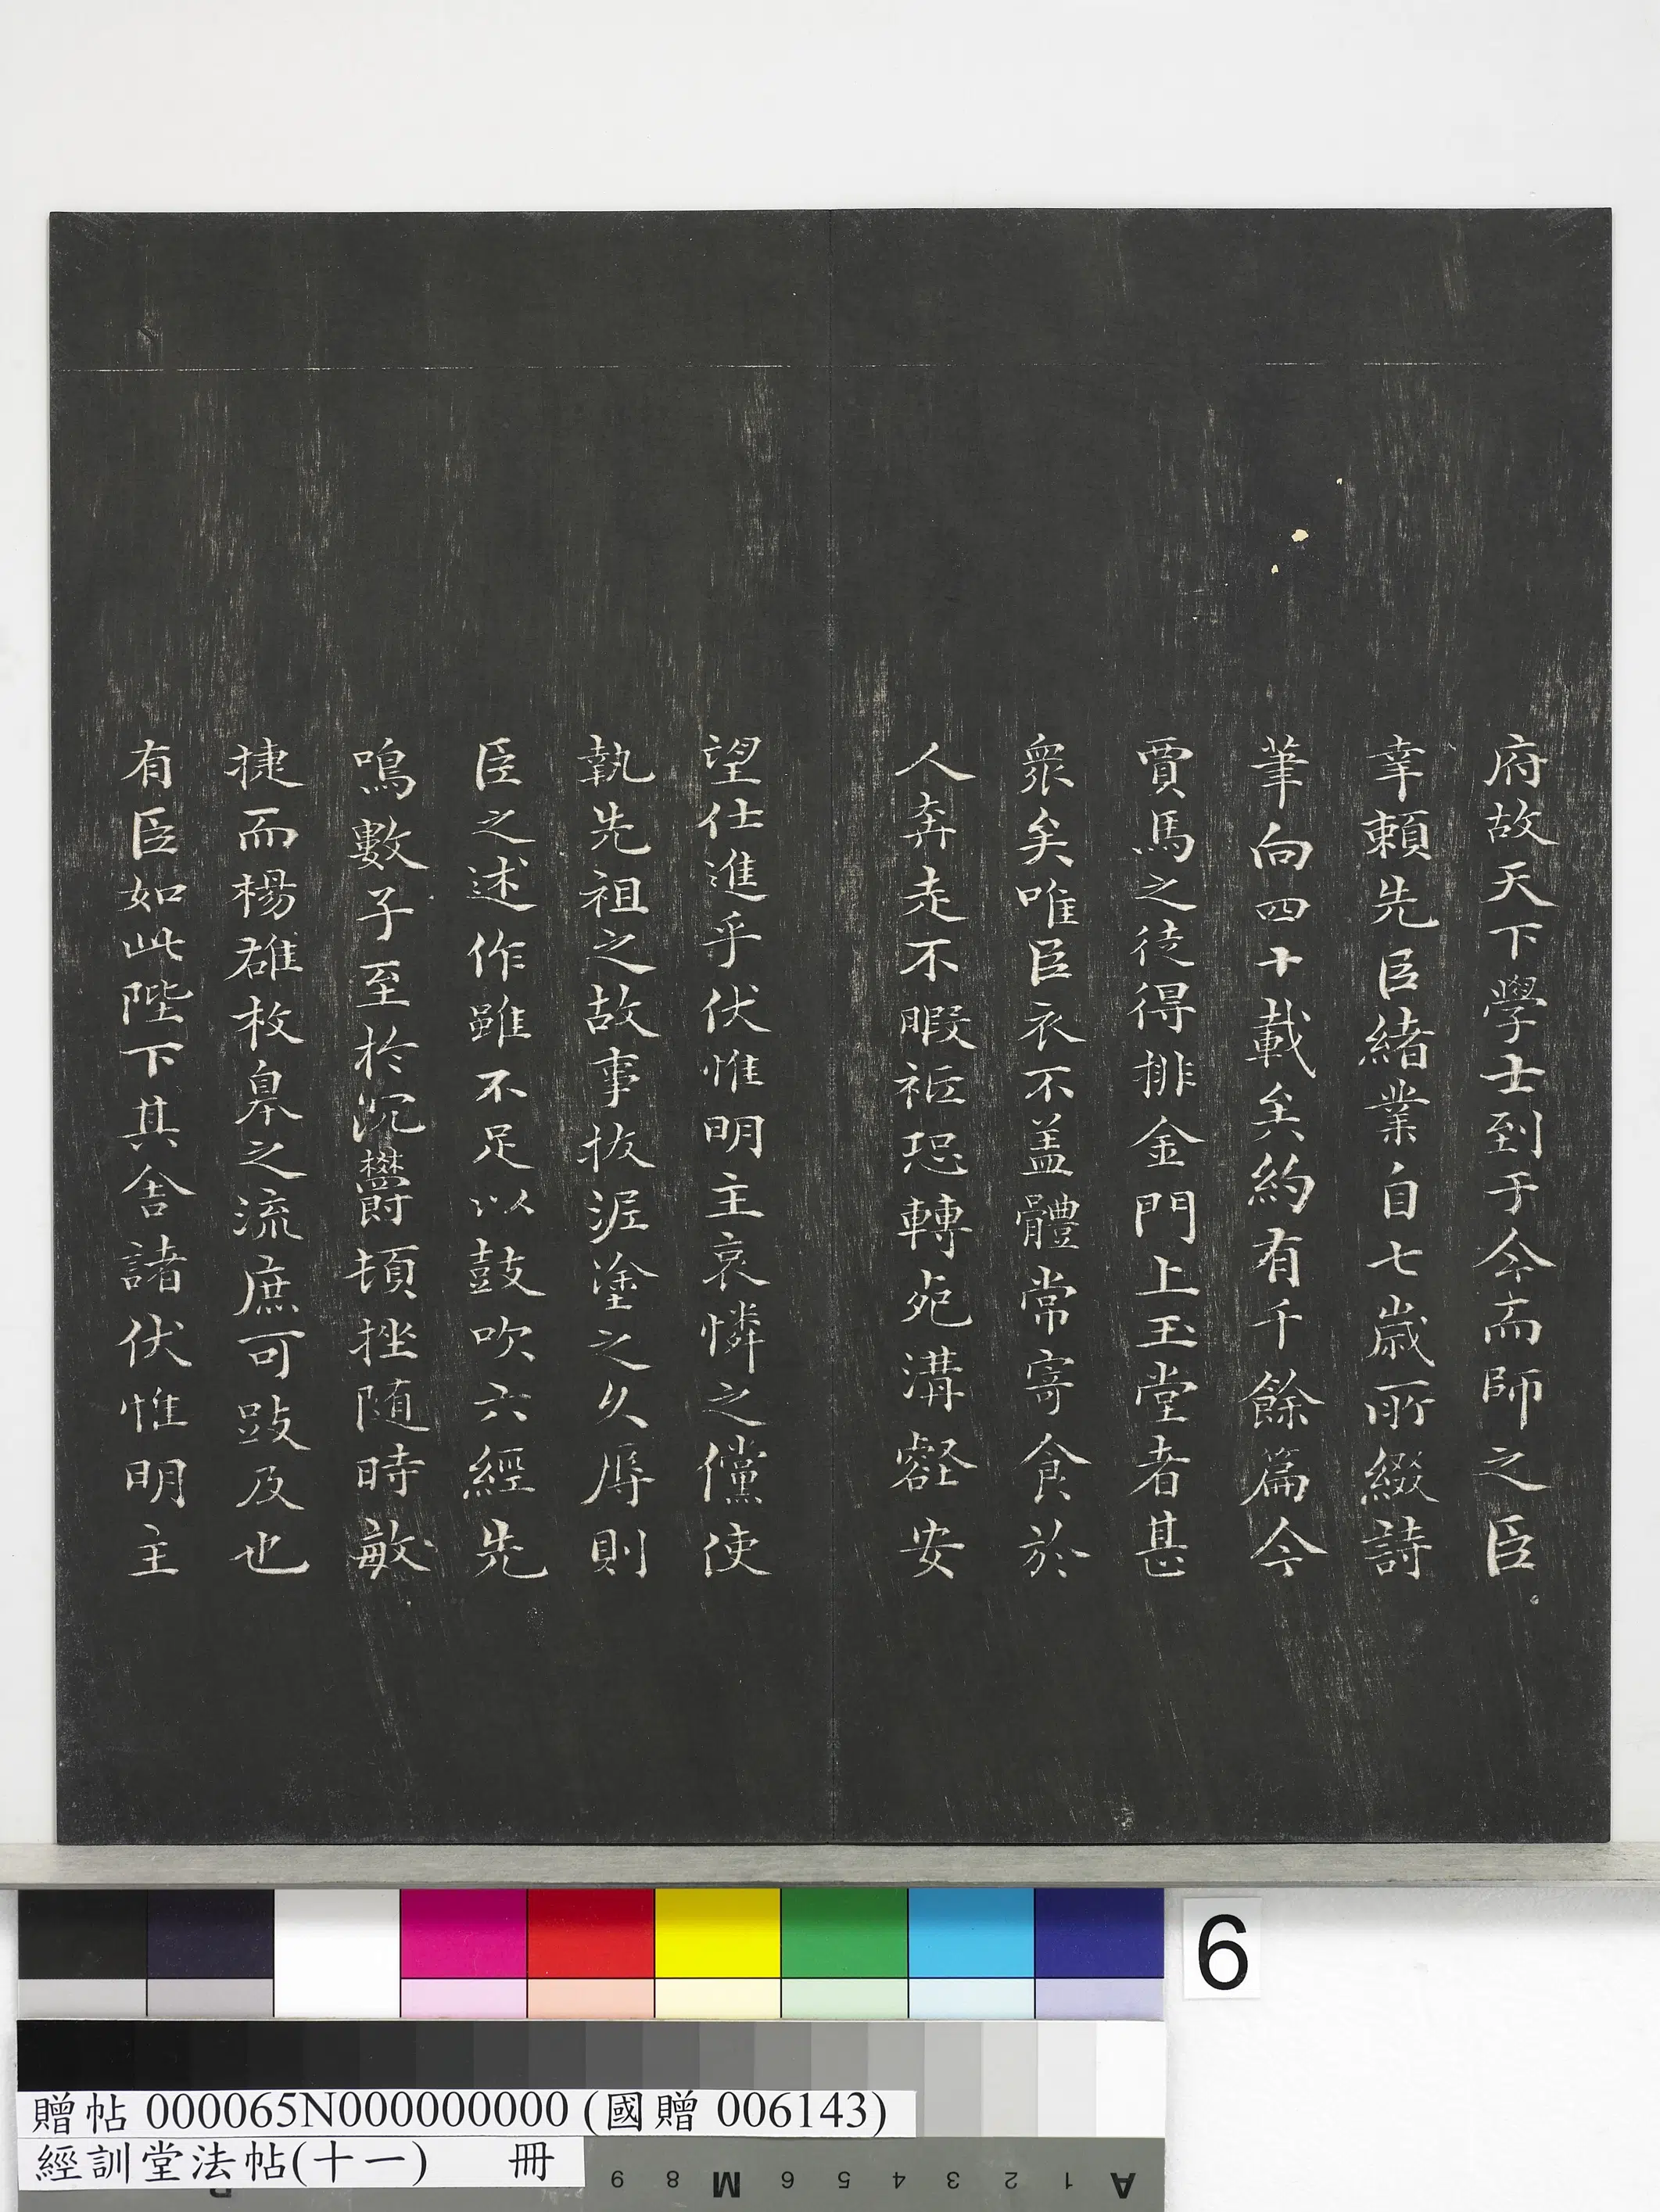 府故天下學士到于今而師之臣
幸賴先臣緒業自七歲所綴詩
筆向四十載矣約有千餘篇今
賈馬之徒得排金門上玉堂者甚
眾矣唯臣衣不盖體常寄食於
人奔走不暇祗恐轉死溝壑安
望仕進乎伏惟明主哀憐之儻使
執先祖之故事拔泥塗之久辱則
臣之述作雖不足以鼓吹六經先
鳴數子至於沉鬱頓挫随時敏
捷而楊雄枚皋之流庶可跂及也
有臣如此陛下其舍諸伏惟明主
6
贈帖 000065N000000000 (國贈 006143)
經訓堂法帖(十一) 冊
9 8 M 6 5 4 3 2 1 A